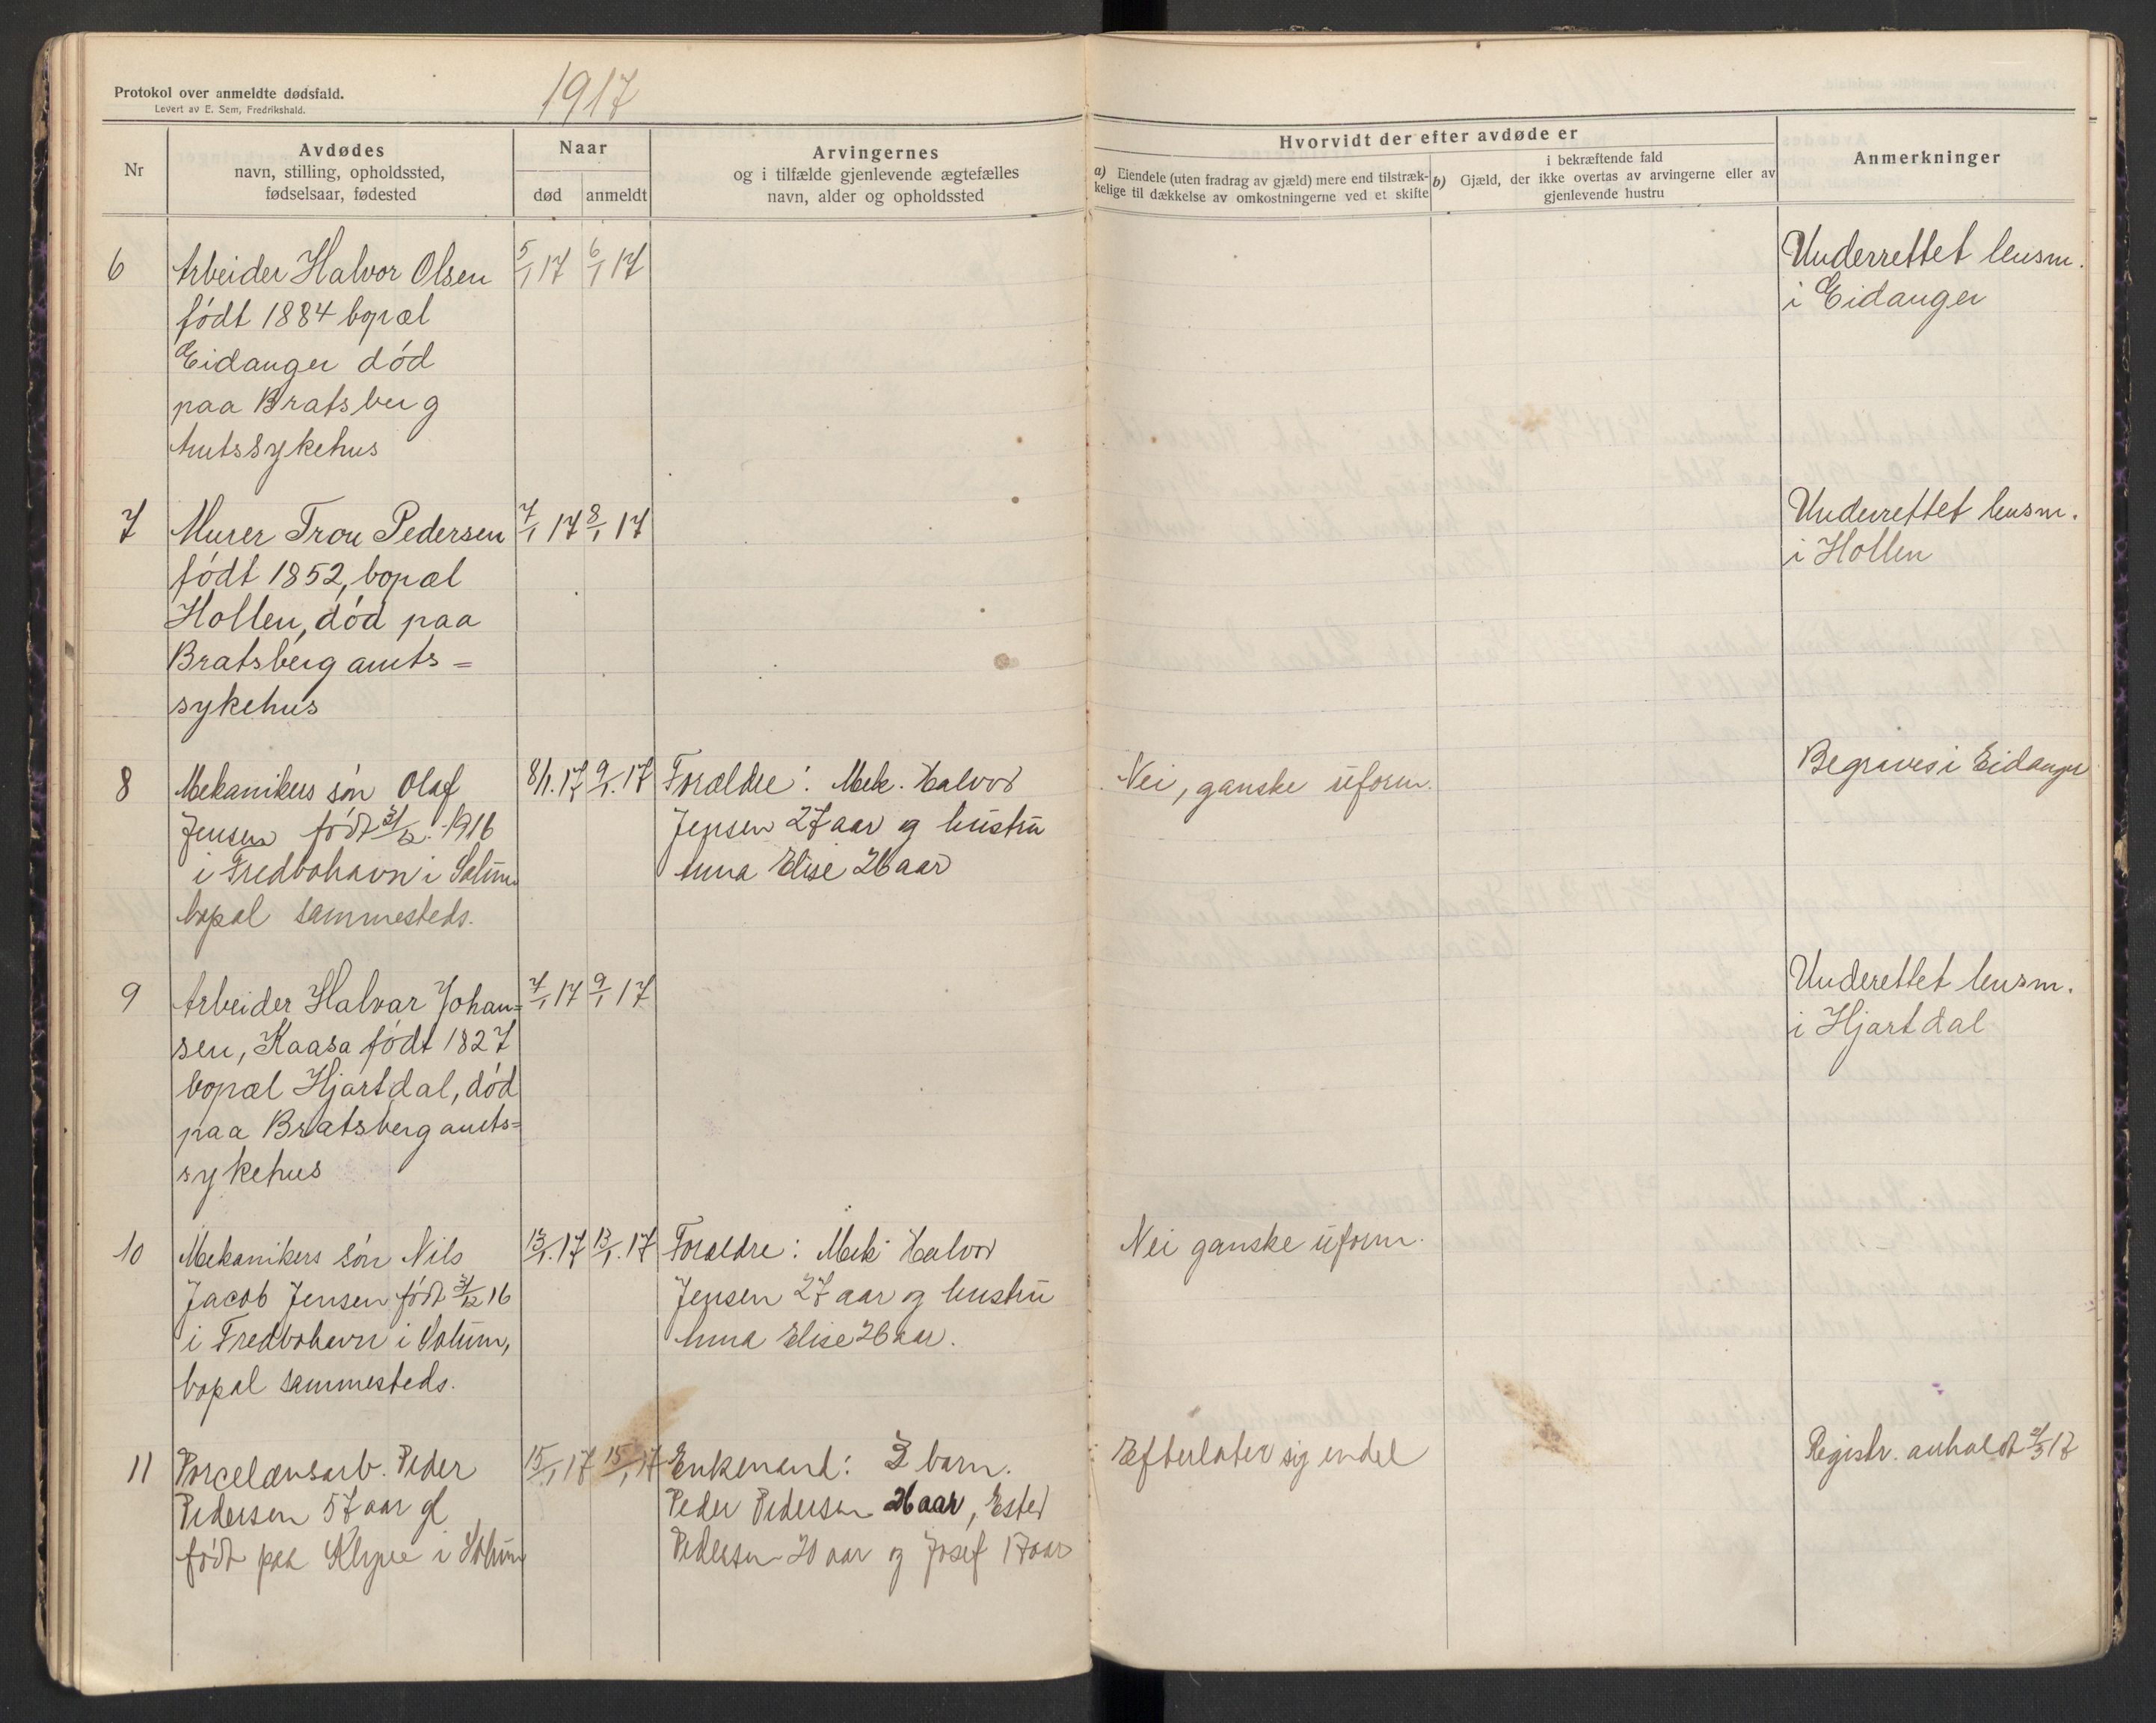 Protokol over anmeldte dødsfald.
Levert av E. Sem, Fredrikshald.
1917
Nr
Avdødes
navn, stilling, opholdssted,
fødselsaar, fødested
Naar
død
anmeldt
Arvingernes
og i tilfælde gjenlevende ægtefælles
navn, alder og opholdssted
Hvorvidt der efter avdøde er
a) Eiendele (uten fradrag av gjæld) mere end tilstræk-
kelige til dækkelse av omkostningerne ved et skifte
i bekræftende fald
b) Gjæld, der ikke overtas av arvingerne eller av
gjenlevende hustru
Anmerkninger
6
Arbeider Halvor Olsen
født 1884 bopæl
Eidanger død
paa Bratsberg
Amtssykehus
5/1 17
6/1 17
Underrettet lensm.
i Eidanger
7
Murer Tron Pedersen
født 1852, bopæl
Hollen, død paa
Bratsberg amts=
sykehus
7/1 17
8/1 17
Underrettet lensm.
i Hollen
8
Mekanikers søn Olaf
Jensen født 31/12. 1916
i Fredbohavn i Solum
bopæl sammesteds.
8/1. 17
9/1. 17
Forældre: Mek. Halvor
Jensen 27 aar og hustru
Anna Elise 26 aar
Nei, ganske uform.
Begraves i Eidanger
9
Arbeider Halvar Johan=
sen, Kaasa født 1827
bopæl Hjartdal, død
paa Bratsberg amts=
sykehus
7/1 17
9/1 17
Underettet lensm.
i Hjartdal
10
Mekanikers søn Nils
Jacob Jensen født 31/12 16
i Fredbohavn i Solum,
bopæl sammesteds.
13/1. 17
13/1. 17
Forældre: Mek Halvor
Jensen 27 aar og hustru
Anna Elise 26 aar.
Nei ganske uform.
11
Porcelænsarb. Peder
Pedersen 57 aar gl
født paa Klyve i Solum
15/1 17
15/1 17
Enkemand: 3 barn.
Peder Pedersen 26 aar, Ester
Pedersen 20 aar og Josef 17 aar
Efterlater sig endel
Registr. avholdt 2/3 17